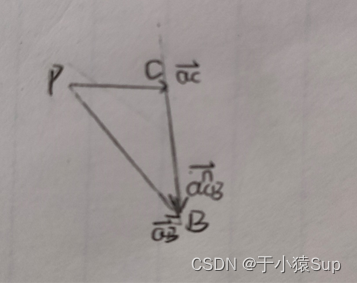 P
C a̅c
a̅cB
a̅B B
CSDN @于小猿Sup